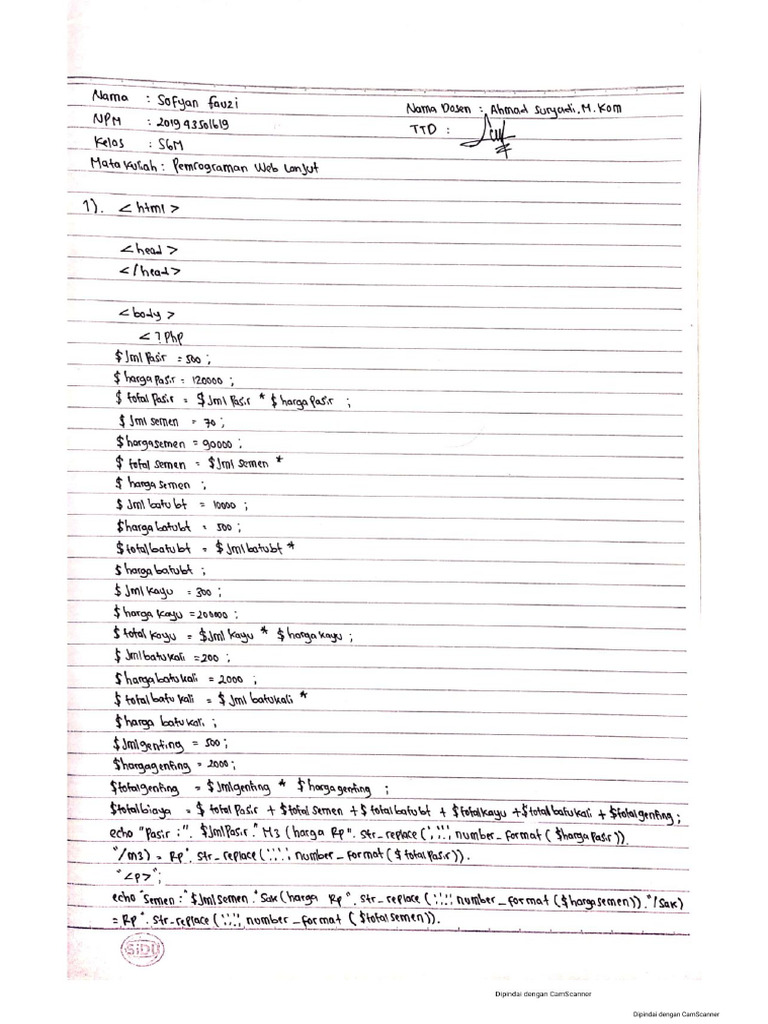 Nama : Sofyan fauzi
Nama Dosen : Ahmad Suryadi, M.Kom
NPM : 201943501619
TTD :
Kelas : S6M
Mata Kuliah : Pemrograman Web Lanjut
1). <html>
<head>
</head>
<body>
<?Php
$JmlPasir = 500 ;
$hargaPasir = 120000 ;
$totalPasir = $JmlPasir * $hargaPasir ;
$Jmlsemen = 70 ;
$hargasemen = 90000 ;
$totalsemen = $Jmlsemen *
$hargasemen ;
$Jmlbatubt = 10000 ;
$hargabatubt = 500 ;
$totalbatubt = $Jmlbatubt *
$hargabatubt ;
$Jmlkayu = 300 ;
$hargakayu = 200000 ;
$totalkayu = $Jmlkayu * $hargakayu ;
$Jmlbatukali = 200 ;
$hargabatukali = 2000 ;
$totalbatukali = $Jmlbatukali *
$hargabatukali ;
$Jmlgenting = 500 ;
$hargagenting = 2000 ;
$totalgenting = $Jmlgenting * $hargagenting ;
$totalbiaya = $totalPasir + $totalsemen + $totalbatubt + $totalkayu + $totalbatukali + $totalgenting ;
echo "Pasir :". $JmlPasir." M3 (harga Rp". str_replace(',','.', number_format($hargaPasir)).
"/m3) = Rp". str_replace(',','.', number_format($totalPasir)).
"<p>";
echo "Semen :" $Jmlsemen."Sak (harga Rp". str_replace(',','.', number_format($hargasemen))."/Sak)
= Rp". str_replace(',','.', number_format($totalsemen)).
SiDU
Dipindai dengan CamScanner
Dipindai dengan CamScanner